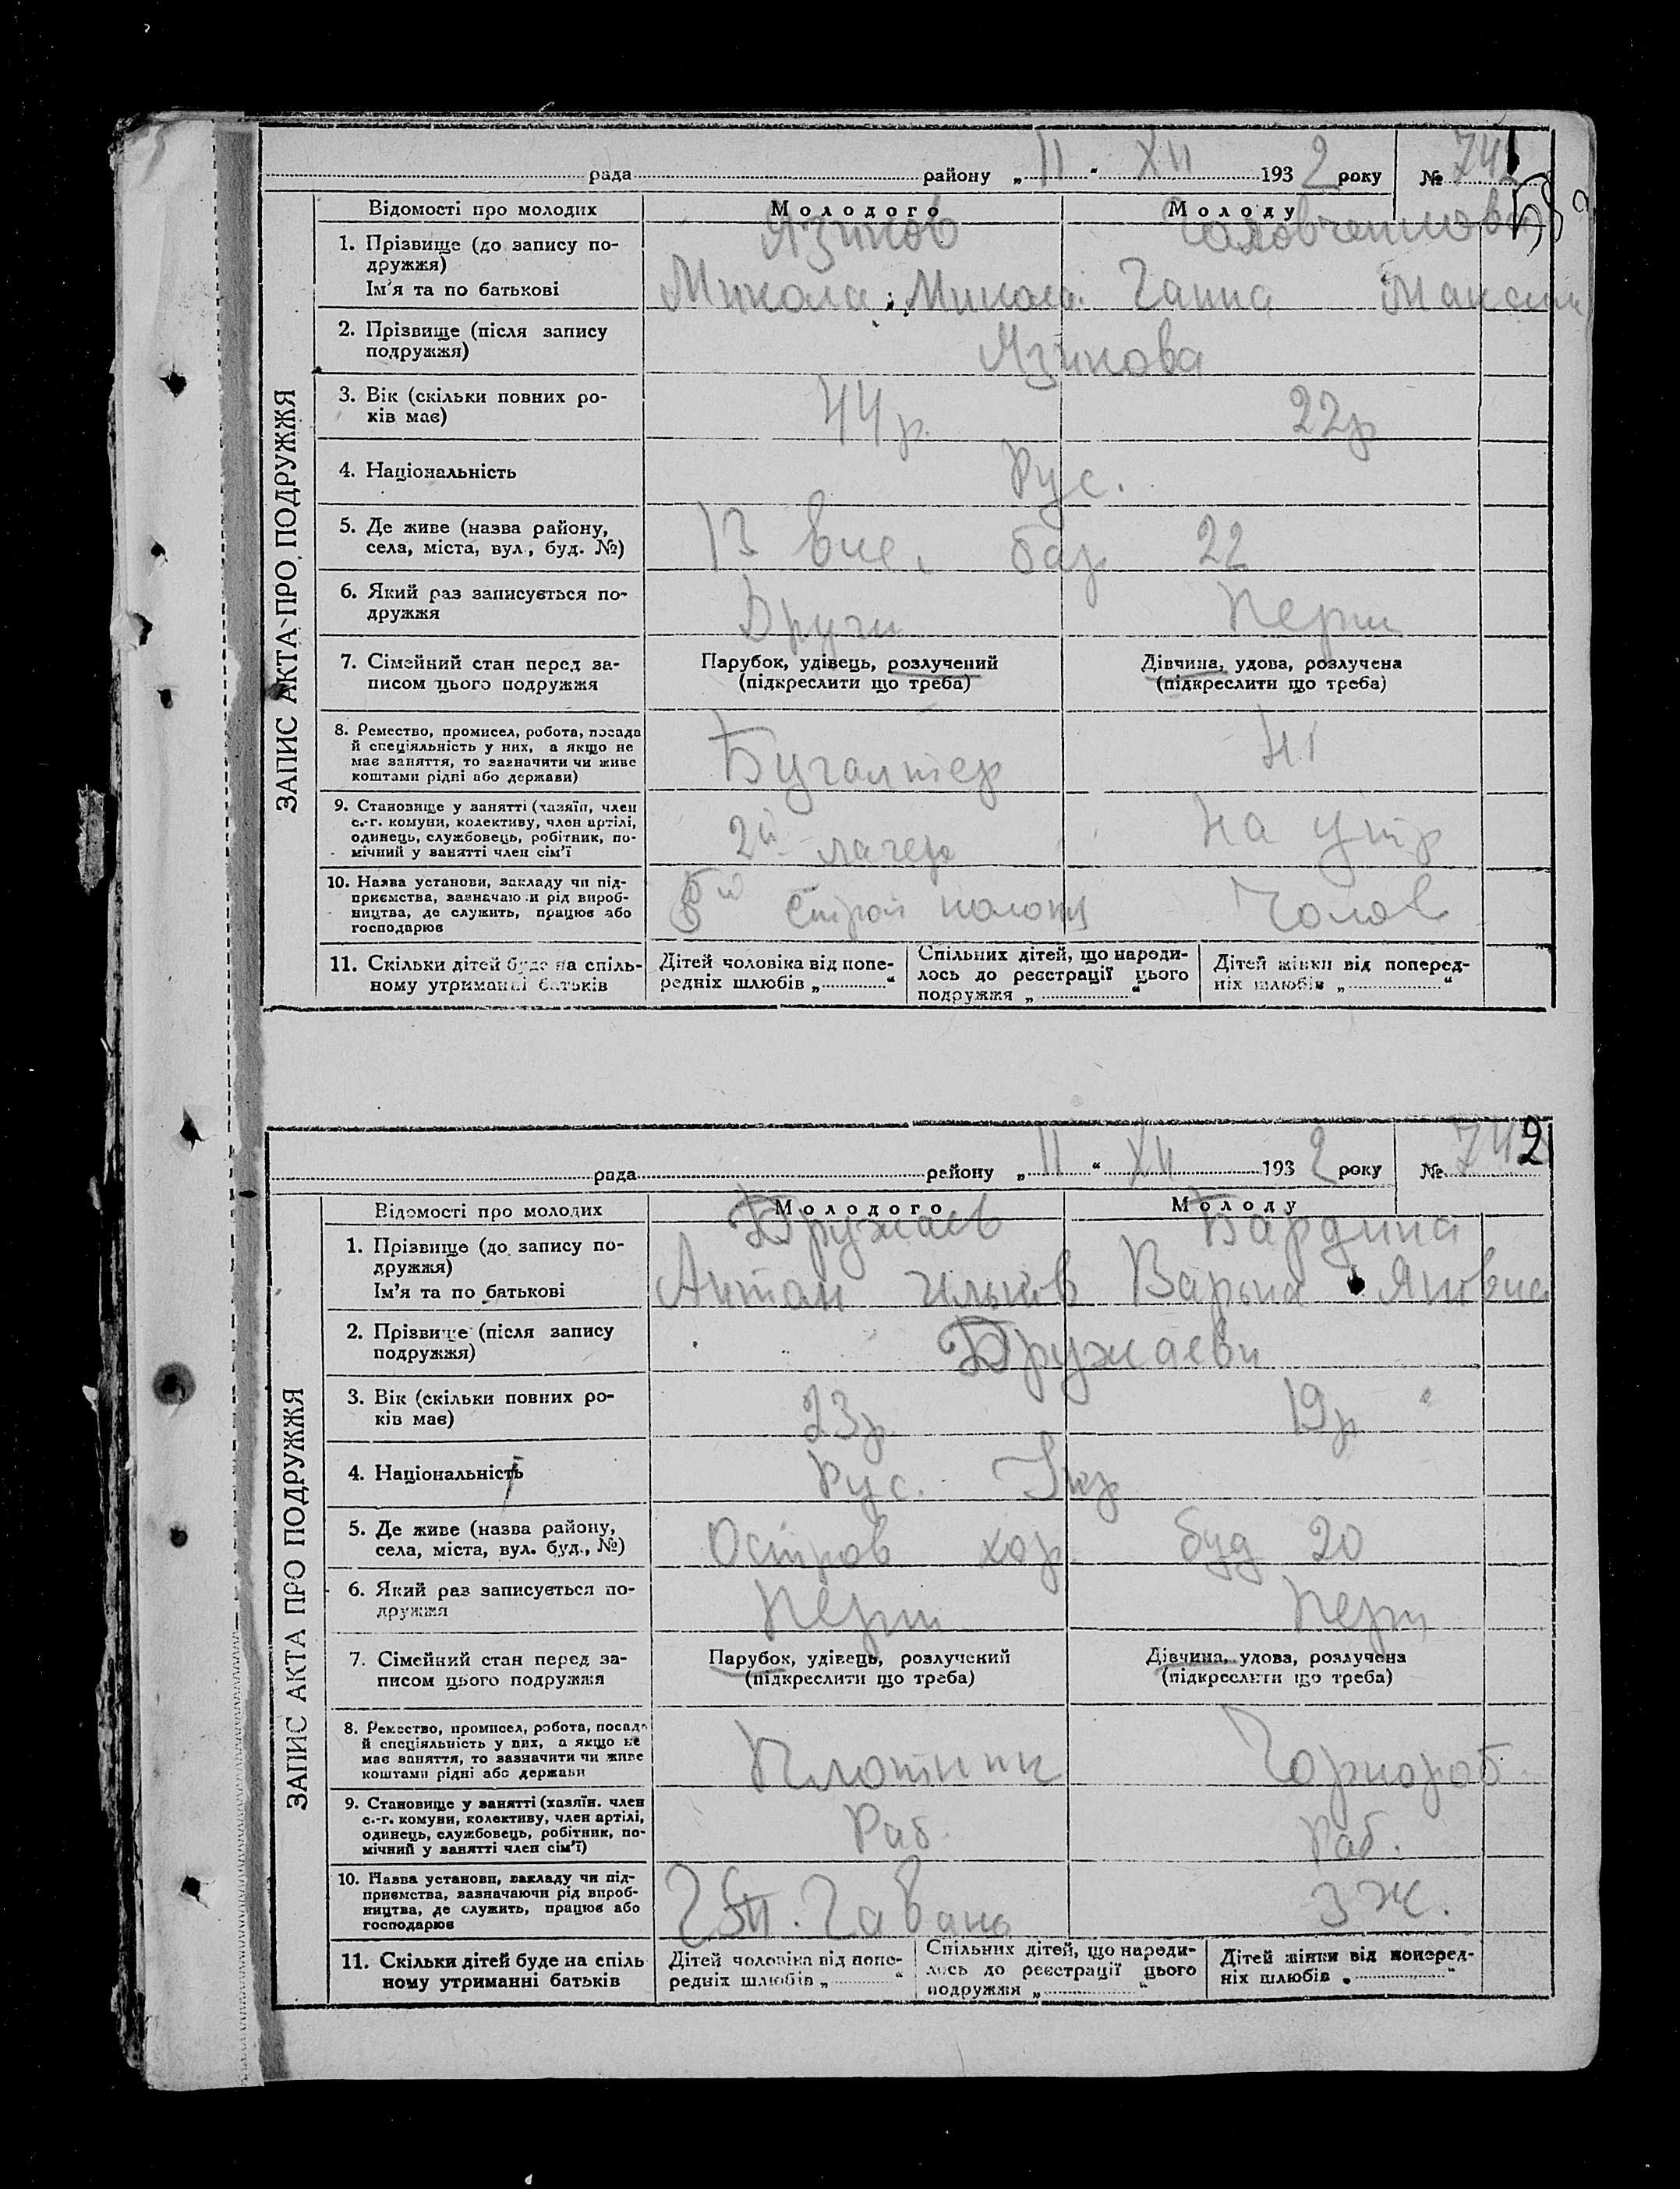 рада району „ 11 “ XII 1932 року № 741
ЗАПИС АКТА ПРО ПОДРУЖЖЯ
Відомості про молодих Молодого Молоду
1. Прізвище (до запису по-
дружжя)
Язиков
Ім'я та по батькові Микола Микол. Ганна Максим
2. Прізвище (після запису
подружжя)
Язикова
3. Вік (скільки повних ро-
ків має)
44 р. 22 р
4. Національність Рус.
5. Де живе (назва району,
села, міста, вул., буд. №)
13 бар 22
6. Який раз записується по-
дружжя
Други Перш
7. Сімейний стан перед за-
писом цього подружжя
Парубок, удівець, розлучений Дівчина, удова, розлучена
(підкреслити що треба) (підкреслити що треба)
8. Ремество, промисел, робота, посада
й спеціяльність у них, а якщо не
має заняття, то зазначити чи живе
коштами рідні або держави)
Бугалтер Ні
9. Становище у занятті (хазяїн, член
с.-г. комуни, колективу, член артілі,
одинець, службовець, робітник, по-
мічний у занятті член сім'ї
2й лагер На утр
10. Назва установи, закладу чи під-
приємства, зазначаючи рід вироб-
ництва, де служить, працює або
господарює
Строй Чолов
11. Скільки дітей буде на спіль-
ному утриманні батьків
Дітей чоловіка від попе-
редніх шлюбів „ “
Спільних дітей, що народи-
лось до реєстрації цього
подружжя „ “
Дітей жінки від поперед-
ніх шлюбів „ “
рада району „ 11 “ XII 1932 року № 742
ЗАПИС АКТА ПРО ПОДРУЖЖЯ
Відомості про молодих Молодого Молоду
1. Прізвище (до запису по-
дружжя)
Дружаев Бардина
Ім'я та по батькові Антон Варвна Яковна
2. Прізвище (після запису
подружжя)
Дружаеви
3. Вік (скільки повних ро-
ків має)
23 р 19 р
4. Національність Рус. Укр
5. Де живе (назва району,
села, міста, вул. буд., №)
Остров хор буд 20
6. Який раз записується по-
дружжя
Перш Перш
7. Сімейний стан перед за-
писом цього подружжя
Парубок, удівець, розлучений Дівчина, удова, розлучена
(підкреслити що треба) (підкреслити що треба)
8. Ремество, промисел, робота, посада
й спеціяльність у них, а якщо не
має заняття, то зазначити чи живе
коштами рідні або держави
Плотник Чорнороб.
9. Становище у занятті (хазяїн. член
с.-г. комуни, колективу, член артілі,
одинець, службовець, робітник, по-
мічний у занятті член сім'ї)
Раб. Раб.
10. Назва установи, закладу чи під-
приємства, зазначаючи рід вироб-
ництва, де служить, працює або
господарює
Гавань З Ж.
11. Скільки дітей буде на спіль
ному утриманні батьків
Дітей чоловіка від попе-
редніх шлюбів „ “
Спільних дітей, що народи-
лось до реєстрації цього
подружжя „ “
Дітей жінки від поперед-
ніх шлюбів „ “